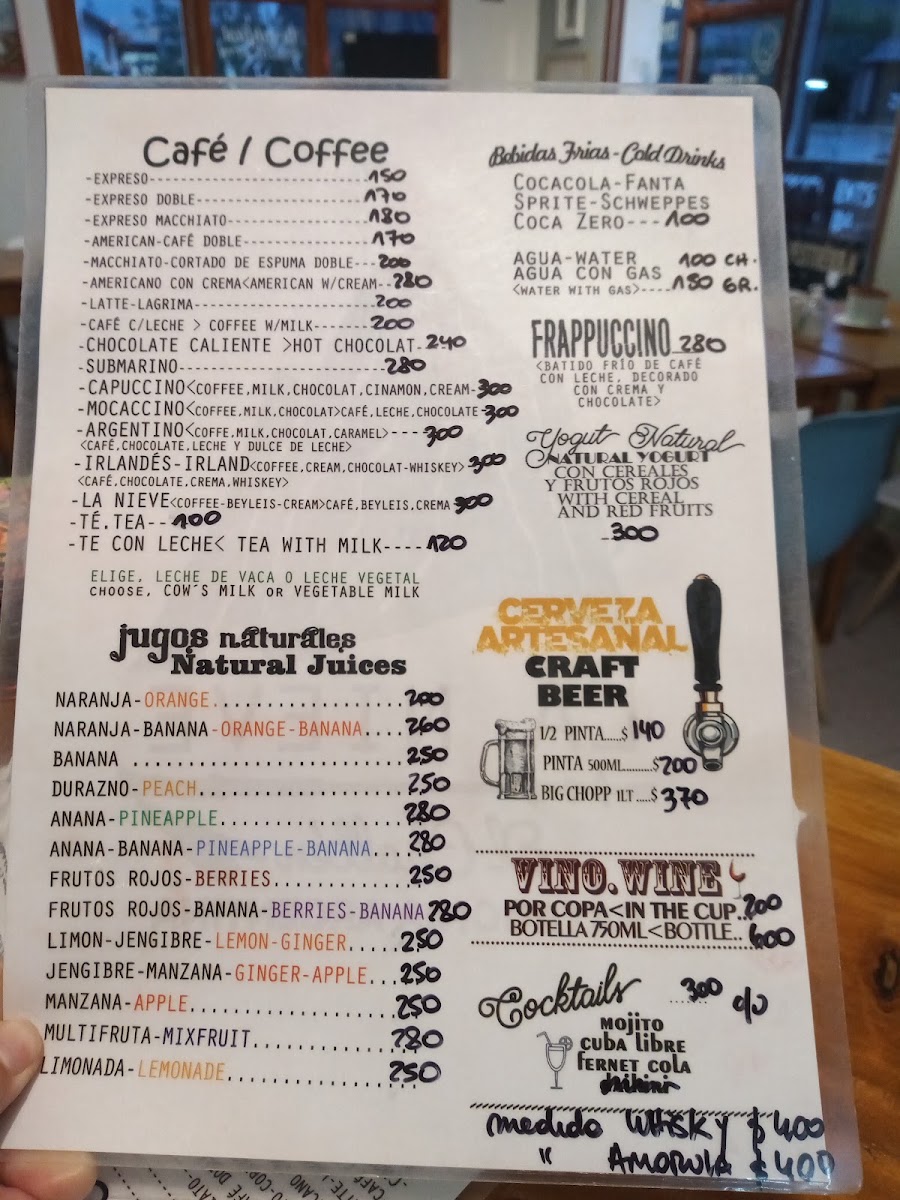 Café / Coffee
-EXPRESO-------------------------150
-EXPRESO DOBLE-------------------170
-EXPRESO MACCHIATO----------------180
-AMERICAN-CAFÉ DOBLE---------------170
-MACCHIATO-CORTADO DE ESPUMA DOBLE---200
-AMERICANO CON CREMA<AMERICAN W/CREAM--280
-LATTE-LAGRIMA---------------------200
-CAFÉ C/LECHE > COFFEE W/MILK-------200
-CHOCOLATE CALIENTE >HOT CHOCOLAT-240
-SUBMARINO----------------------280
-CAPUCCINO<COFFEE,MILK,CHOCOLAT,CINAMON,CREAM-300
-MOCACCINO<COFFEE,MILK,CHOCOLAT>CAFÉ,LECHE,CHOCOLATE-300
-ARGENTINO<COFFE,MILK,CHOCOLAT,CARAMEL>----300
<CAFÉ,CHOCOLATE,LECHE Y DULCE DE LECHE>
-IRLANDÉS-IRLAND<COFFEE,CREAM,CHOCOLAT-WHISKEY>300
<CAFÉ,CHOCOLATE,CREMA,WHISKEY>
-LA NIEVE<COFFEE-BEYLEIS-CREAM>CAFÉ,BEYLEIS,CREMA 300
-TÉ.TEA--100
-TE CON LECHE< TEA WITH MILK----120
ELIGE, LECHE DE VACA O LECHE VEGETAL
CHOOSE, COW´S MILK OR VEGETABLE MILK
jugos naturales
Natural Juices
NARANJA-ORANGE...................200
NARANJA-BANANA-ORANGE-BANANA....260
BANANA ..........................250
DURAZNO-PEACH....................250
ANANA-PINEAPPLE..................280
ANANA-BANANA-PINEAPPLE-BANANA....280
FRUTOS ROJOS-BERRIES.............250
FRUTOS ROJOS-BANANA-BERRIES-BANANA 280
LIMON-JENGIBRE-LEMON-GINGER.....250
JENGIBRE-MANZANA-GINGER-APPLE...250
MANZANA-APPLE....................250
MULTIFRUTA-MIXFRUIT..............280
LIMONADA-LEMONADE................250
Bebidas Frias-Cold Drinks
COCACOLA-FANTA
SPRITE-SCHWEPPES
COCA ZERO---100
AGUA-WATER 100 CH.
AGUA CON GAS
<WATER WITH GAS>----150 GR.
FRAPPUCCINO 280
<BATIDO FRÍO DE CAFÉ
CON LECHE, DECORADO
CON CREMA Y
CHOCOLATE>
Yogut Natural
NATURAL YOGURT
CON CEREALES
Y FRUTOS ROJOS
WITH CEREAL
AND RED FRUITS
300
CERVEZA
ARTESANAL
CRAFT
BEER
1/2 PINTA.....$ 140
PINTA 500ML..........$200
BIG CHOPP 1LT .....$ 370
VINO.WINE
POR COPA<IN THE CUP..200
BOTELLA 750ML<BOTTLE.. 600
Cocktails 300 c/u
MOJITO
CUBA LIBRE
FERNET COLA
medida WHISKY $ 400
" AMARULA $ 400